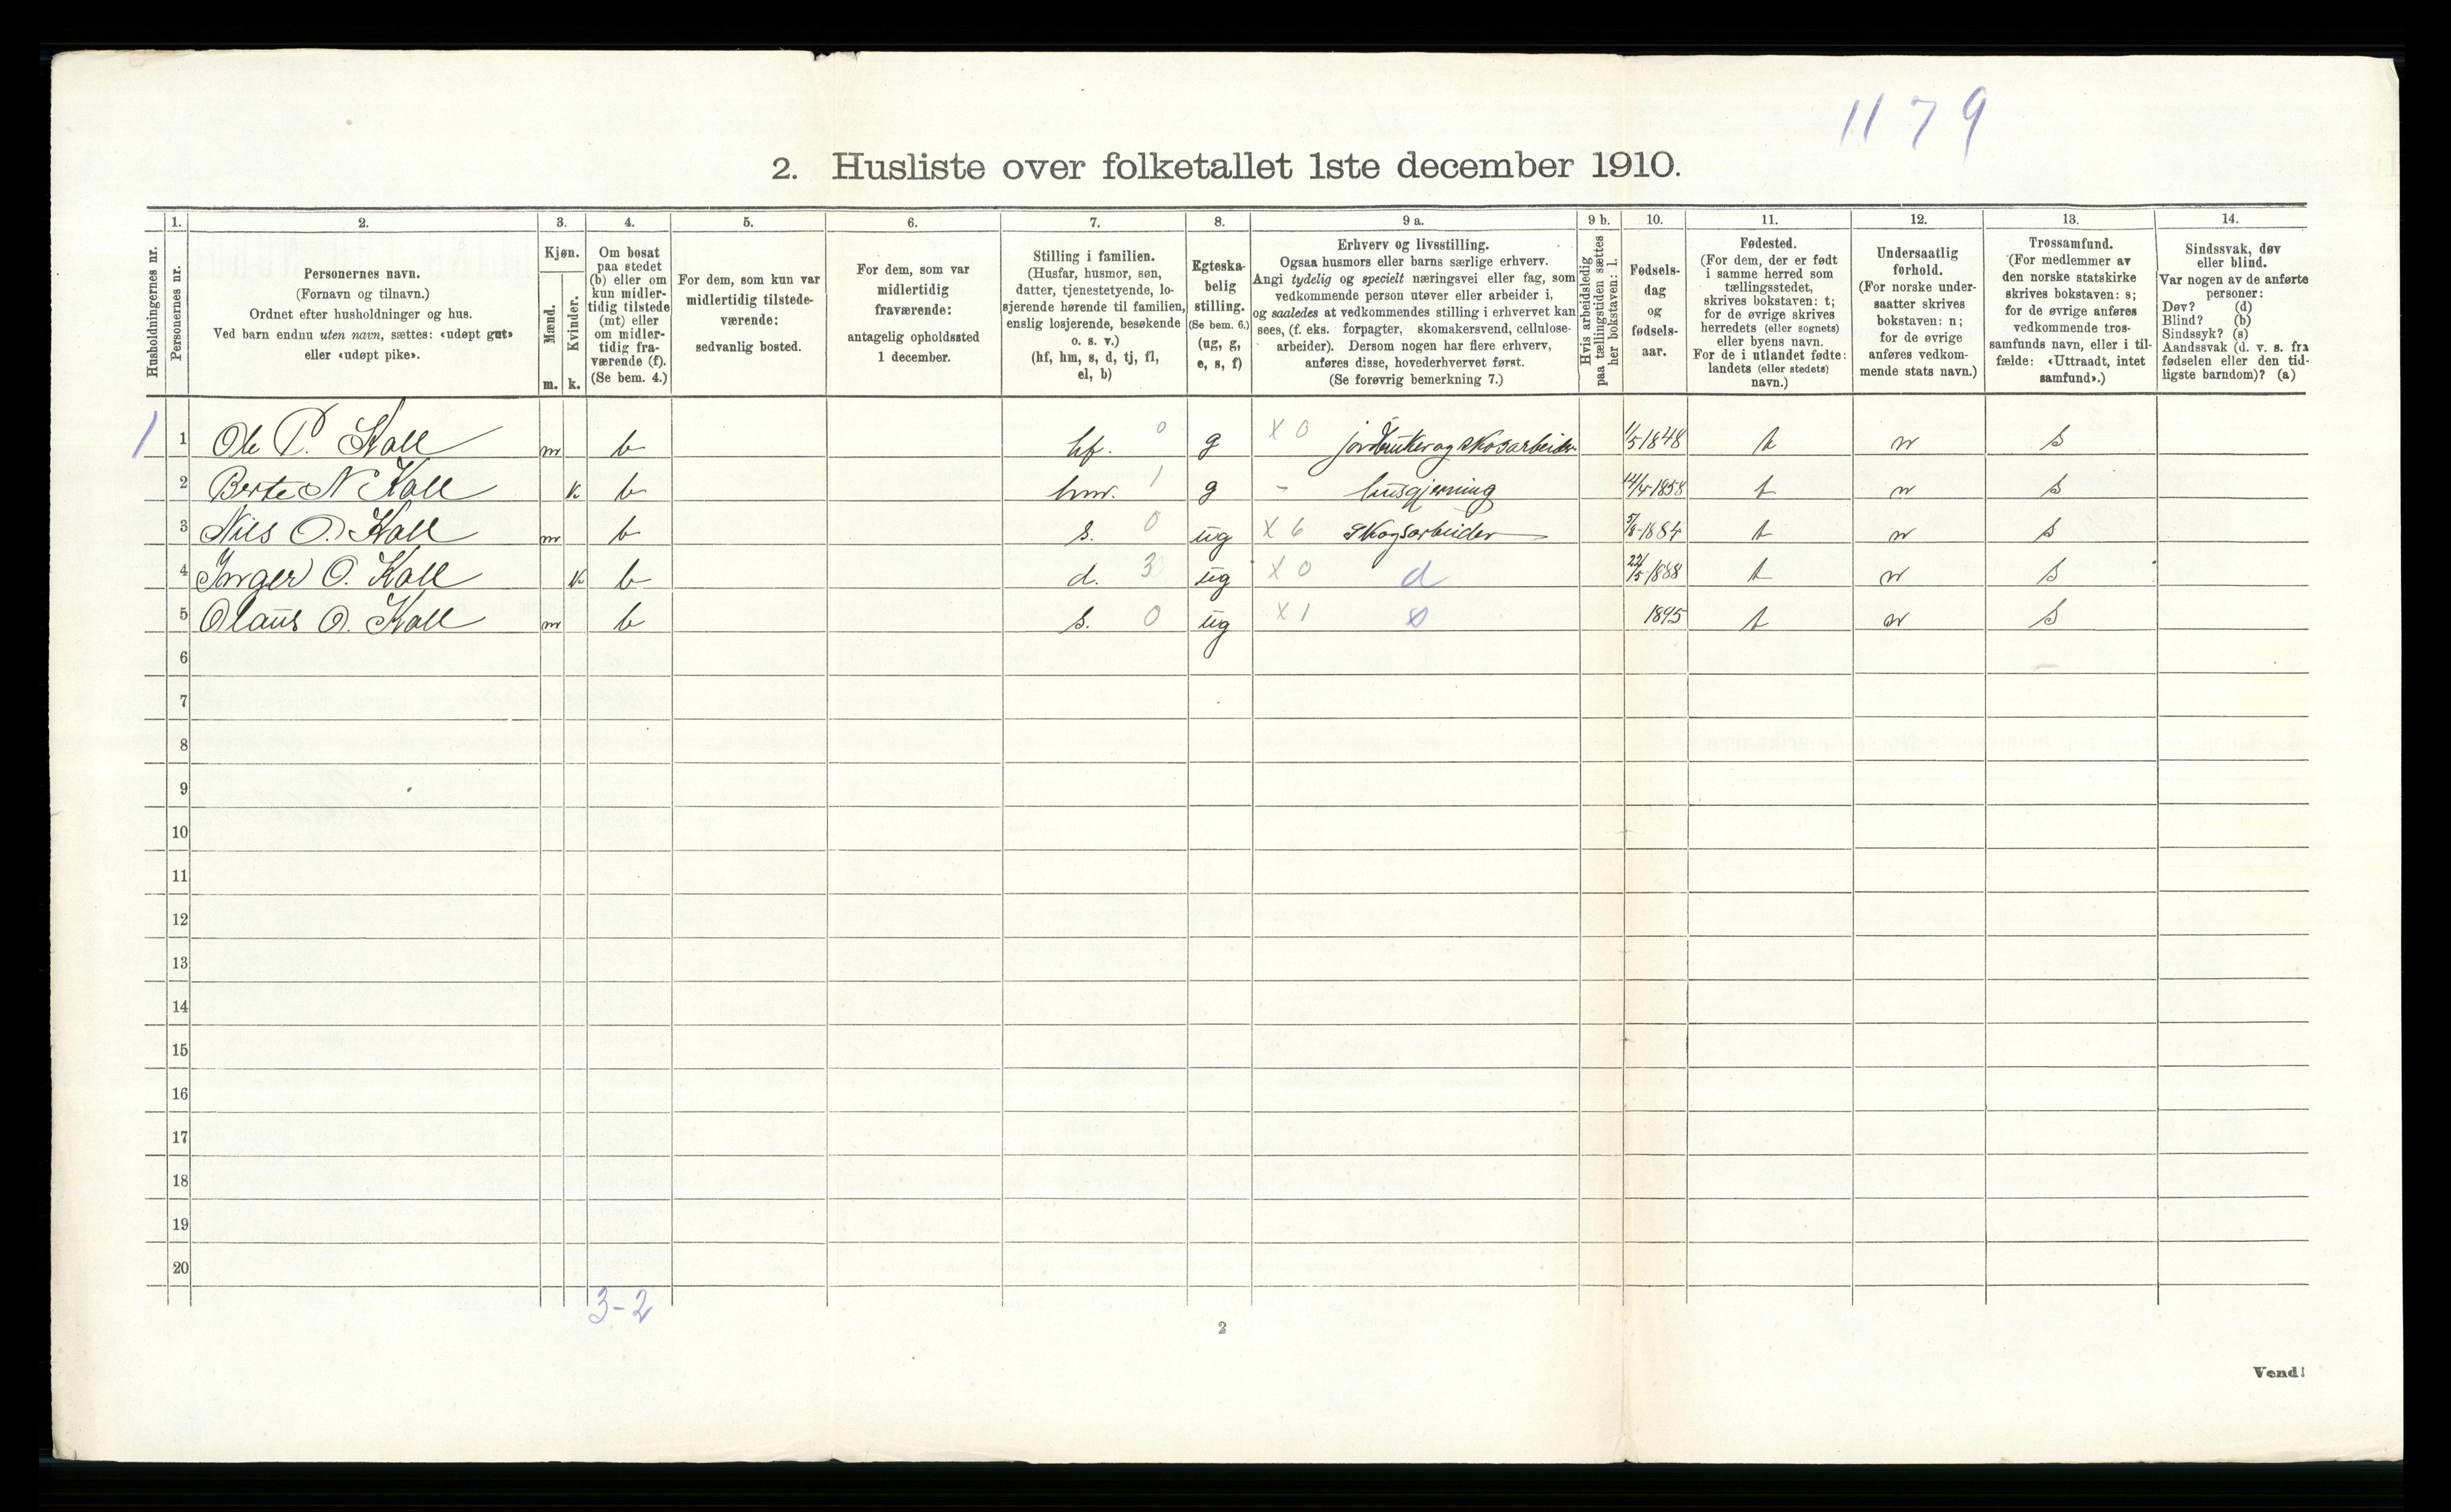 1179
2. Husliste over folketallet 1ste december 1910.
Husholdningernes nr.
1.
Personernes nr.
2.
Personernes navn.
(Fornavn og tilnavn.)
Ordnet efter husholdninger og hus.
Ved barn endnu uten navn, sættes: «udøpt gut»
eller «udøpt pike».
3.
Kjøn.
Mænd.
m.
Kvinder.
k.
4.
Om bosat
paa stedet
(b) eller om
kun midler-
tidig tilstede
(mt) eller
om midler-
tidig fra-
værende (f).
(Se bem. 4.)
5.
For dem, som kun var
midlertidig tilstede-
værende:
sedvanlig bosted.
6.
For dem, som var
midlertidig
fraværende:
antagelig opholdssted
1 december.
7.
Stilling i familien.
(Husfar, husmor, søn,
datter, tjenestetyende, lo-
sjerende hørende til familien,
enslig losjerende, besøkende
o. s. v.)
(hf, hm, s, d, tj, fl,
el, b)
8.
Egteska-
belig
stilling.
(Se bem. 6.)
(ug, g,
e, s, f)
9 a.
Erhverv og livsstilling.
Ogsaa husmors eller barns særlige erhverv.
Angi tydelig og specielt næringsvei eller fag, som
vedkommende person utøver eller arbeider i,
og saaledes at vedkommendes stilling i erhvervet kan
sees, (f. eks. forpagter, skomakersvend, cellulose-
arbeider). Dersom nogen har flere erhverv,
anføres disse, hovederhvervet først.
(Se forøvrig bemerkning 7.)
9 b.
Hvis arbeidsledig
paa tællingstiden sættes
her bokstaven: l.
10.
Fødsels-
dag
og
fødsels-
aar.
11.
Fødested.
(For dem, der er født
i samme herred som
tællingsstedet,
skrives bokstaven: t;
for de øvrige skrives
herredets (eller sognets)
eller byens navn.
For de i utlandet fødte:
landets (eller stedets)
navn.)
12.
Undersaatlig
forhold.
(For norske under-
saatter skrives
bokstaven: n;
for de øvrige
anføres vedkom-
mende stats navn.)
13.
Trossamfund.
(For medlemmer av
den norske statskirke
skrives bokstaven: s;
for de øvrige anføres
vedkommende tros-
samfunds navn, eller i til-
fælde: «Uttraadt, intet
samfund».)
14.
Sindssvak, døv
eller blind.
Var nogen av de anførte
personer:
Døv? (d)
Blind? (b)
Sindssyk? (s)
Aandssvak (d. v. s. fra
fødselen eller den tid-
ligste barndom)? (a)
1 1 Ole P. Kall m b hf. 0 g X 0 jordbruker og skogarbeider 1/5 1848 t n s
2 Berte N Kall k b hm. 1 g - husgjerning 1858 t n s
3 Nils O. Kall m b s. 0 ug X 6 Skogsarbeider 5/8-1884 t n s
4 Inger O. Kall k b d. 3 ug X 0 d 22/5-1888 t n s
5 Olaus O. Kall m b s. 0 ug X 1 s 1895 t n s
6
7
8
9
10
11
12
13
14
15
16
17
18
19
20
3-2
2
Vend!